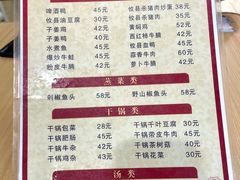 啤酒鸭 45元 攸县杀猪肉炒蛋 38元
攸县油豆腐 32元 攸县杀猪肉 45元
子姜鸡 42元 黄焖鸡 42元
子姜鸭 40元 西红柿牛腩 42元
水煮鱼 40元 攸县血鸭 45元
爆炒牛蛙 45元 蒜香牛肉 60元
粉皮牛腩 42元 萝卜牛腩 42元
蒸菜类
剁椒鱼头 58元 野山椒鱼头 58元
干锅类
干锅包菜 28元 干锅千叶豆腐 30元
干锅肥肠 45元 干锅带皮牛肉 45元
干锅牛杂 42元 干锅茶树菇 40元
干锅鸡杂 45元 干锅花菜 30元
汤类